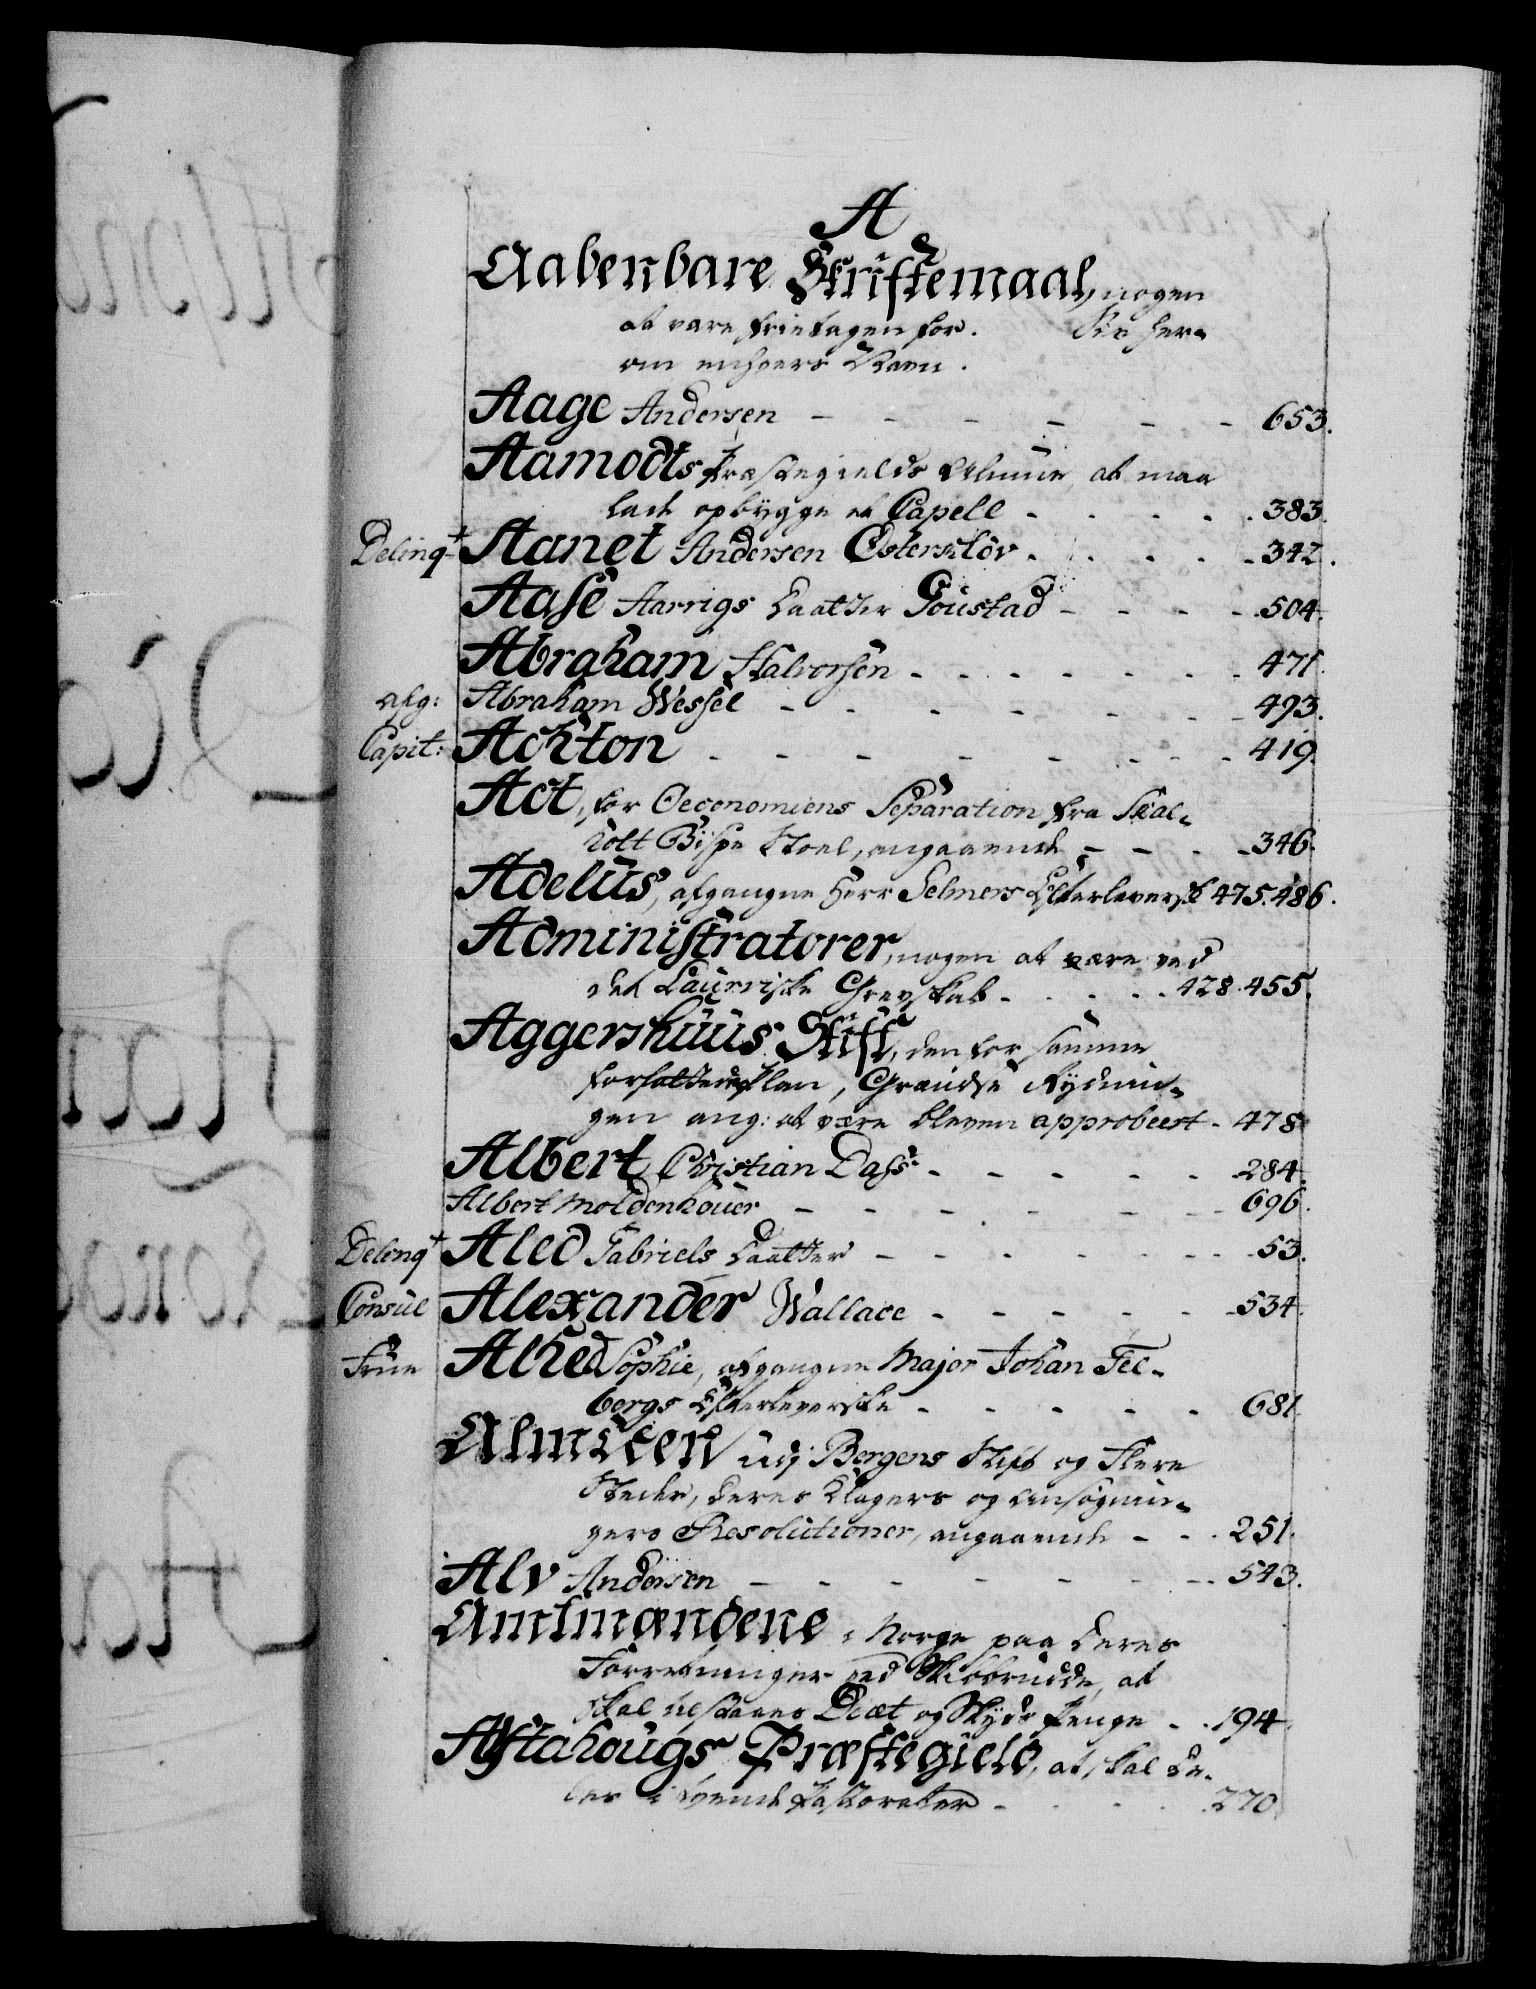 A
Aabenbare Skriftemaal, nogen
at være fritagen for. See her-
om enhvers Navn.
Aage Andersen - - - - - - 653.
Aamodts Præstegields Almue at maa
lade opbygge et Capell - - - - 383.
Delinqt Aanet Andersen Ostersclöv - - - - 342.
Aase Aarrigs Daatter Goustad - - - - 504.
Abraham Halvorsen - - - - - - 471.
afg: Abraham Wessel - - - - - - 493.
Capit: Achton - - - - - - - 419.
Act, for Oeconomiens Separation fra Skal-
holt Bispe Stoel, angaaende - - - 346.
Adelus, afgangne Herr Selmers Efterleversk 475. 486.
Administratorer, nogen at være ved
det Laurvigske Grevskab - - - - 428. 455.
Aggershuus Stift, den for samme
forfattede Plan, Grændse Rydnin-
gen ang: at være bleven approbeert - 478
Albert Christian Dass - - - - - 284.
Albert Moldenhauer - - - - - - 696.
Delenqt Aled Gabriels Daatter - - - - - - 53.
Consul Alexander Wallace - - - - - 534.
Frue Alhed Sophie, afgangne Major Johan Fel-
bergs Efterleverske - - - - - 681.
Almuen udj Bergens Stift og Flere
Steder, deres Klagers og Ansøgnin-
gers Resolutioner, angaaende - - - 251.
Alv Andersen - - - - - - - 543.
Amtmændene i Norge paa deres
Forretninger ved Skibbrudde, at
skal tilstaaes Diæt og Skyds Penge - - 194.
Alstahougs Præstegield, at skal de-
les i tvende Pastorater - - - - 270.